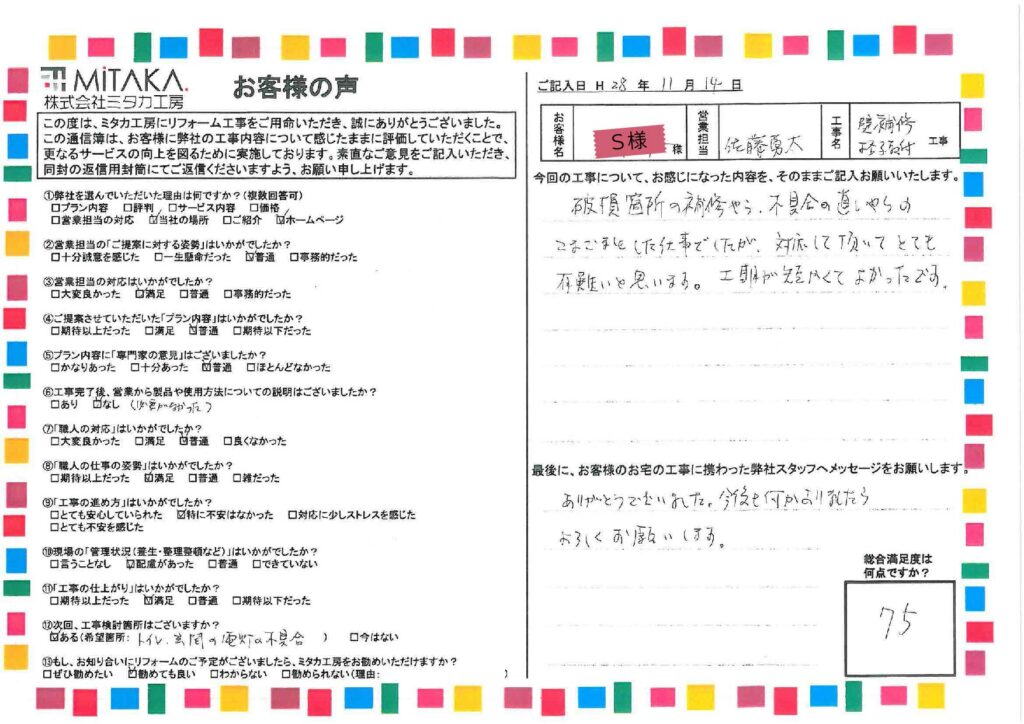 MiTAKA.
株式会社ミタカ工房
お客様の声
この度は、ミタカ工房にリフォーム工事をご用命いただき、誠にありがとうございました。
この通信簿は、お客様に弊社の工事内容について感じたままに評価していただくことで、
更なるサービスの向上を図るために実施しております。素直なご意見をご記入いただき、
同封の返信用封筒にてご返信くださいますよう、お願い申し上げます。
①弊社を選んでいただいた理由は何ですか?(複数回答可)
□プラン内容 □評判 □サービス内容 □価格
□営業担当の対応 ☑当社の場所 □ご紹介 ☑ホームページ
②営業担当の「ご提案に対する姿勢」はいかがでしたか?
□十分誠意を感じた □一生懸命だった ☑普通 □事務的だった
③営業担当の対応はいかがでしたか?
□大変良かった ☑満足 □普通 □事務的だった
④ご提案させていただいた「プラン内容」はいかがでしたか?
□期待以上だった □満足 ☑普通 □期待以下だった
⑤プラン内容に「専門家の意見」はございましたか?
□かなりあった □十分あった ☑普通 □ほとんどなかった
⑥工事完了後、営業から製品や使用方法についての説明はございましたか?
□あり ☑なし (必要がなかった)
⑦「職人の対応」はいかがでしたか?
□大変良かった □満足 ☑普通 □良くなかった
⑧「職人の仕事の姿勢」はいかがでしたか?
□期待以上だった ☑満足 □普通 □雑だった
⑨「工事の進め方」はいかがでしたか?
□とても安心していられた ☑特に不安はなかった □対応に少しストレスを感じた
□とても不安を感じた
⑩現場の「管理状況(養生・整理整頓など)」はいかがでしたか?
□言うことなし ☑配慮があった □普通 □できていない
⑪「工事の仕上がり」はいかがでしたか?
□期待以上だった ☑満足 □普通 □期待以下だった
⑫次回、工事検討箇所はございますか?
☑ある(希望箇所: トイレ、玄関の電灯の不具合 ) □今はない
⑬もし、お知り合いにリフォームのご予定がございましたら、ミタカ工房をお勧めいただけますか?
□ぜひ勧めたい ☑勧めても良い □わからない □勧められない(理由: )
ご記入日 H 28 年 11 月 14 日
お客様名 S様 様 営業担当 佐藤勇太 工事名 壁補修 工事
今回の工事について、お感じになった内容を、そのままご記入お願いいたします。
破損箇所の補修やら、不具合の直しやらの
こまごまとした仕事でしたが、対応して頂いてとても
有難いと思います。工期が短かくてよかったです。
最後に、お客様のお宅の工事に携わった弊社スタッフへメッセージをお願いします。
ありがとうございました。今後も何かありましたら
よろしくお願いします。
総合満足度は
何点ですか?
75